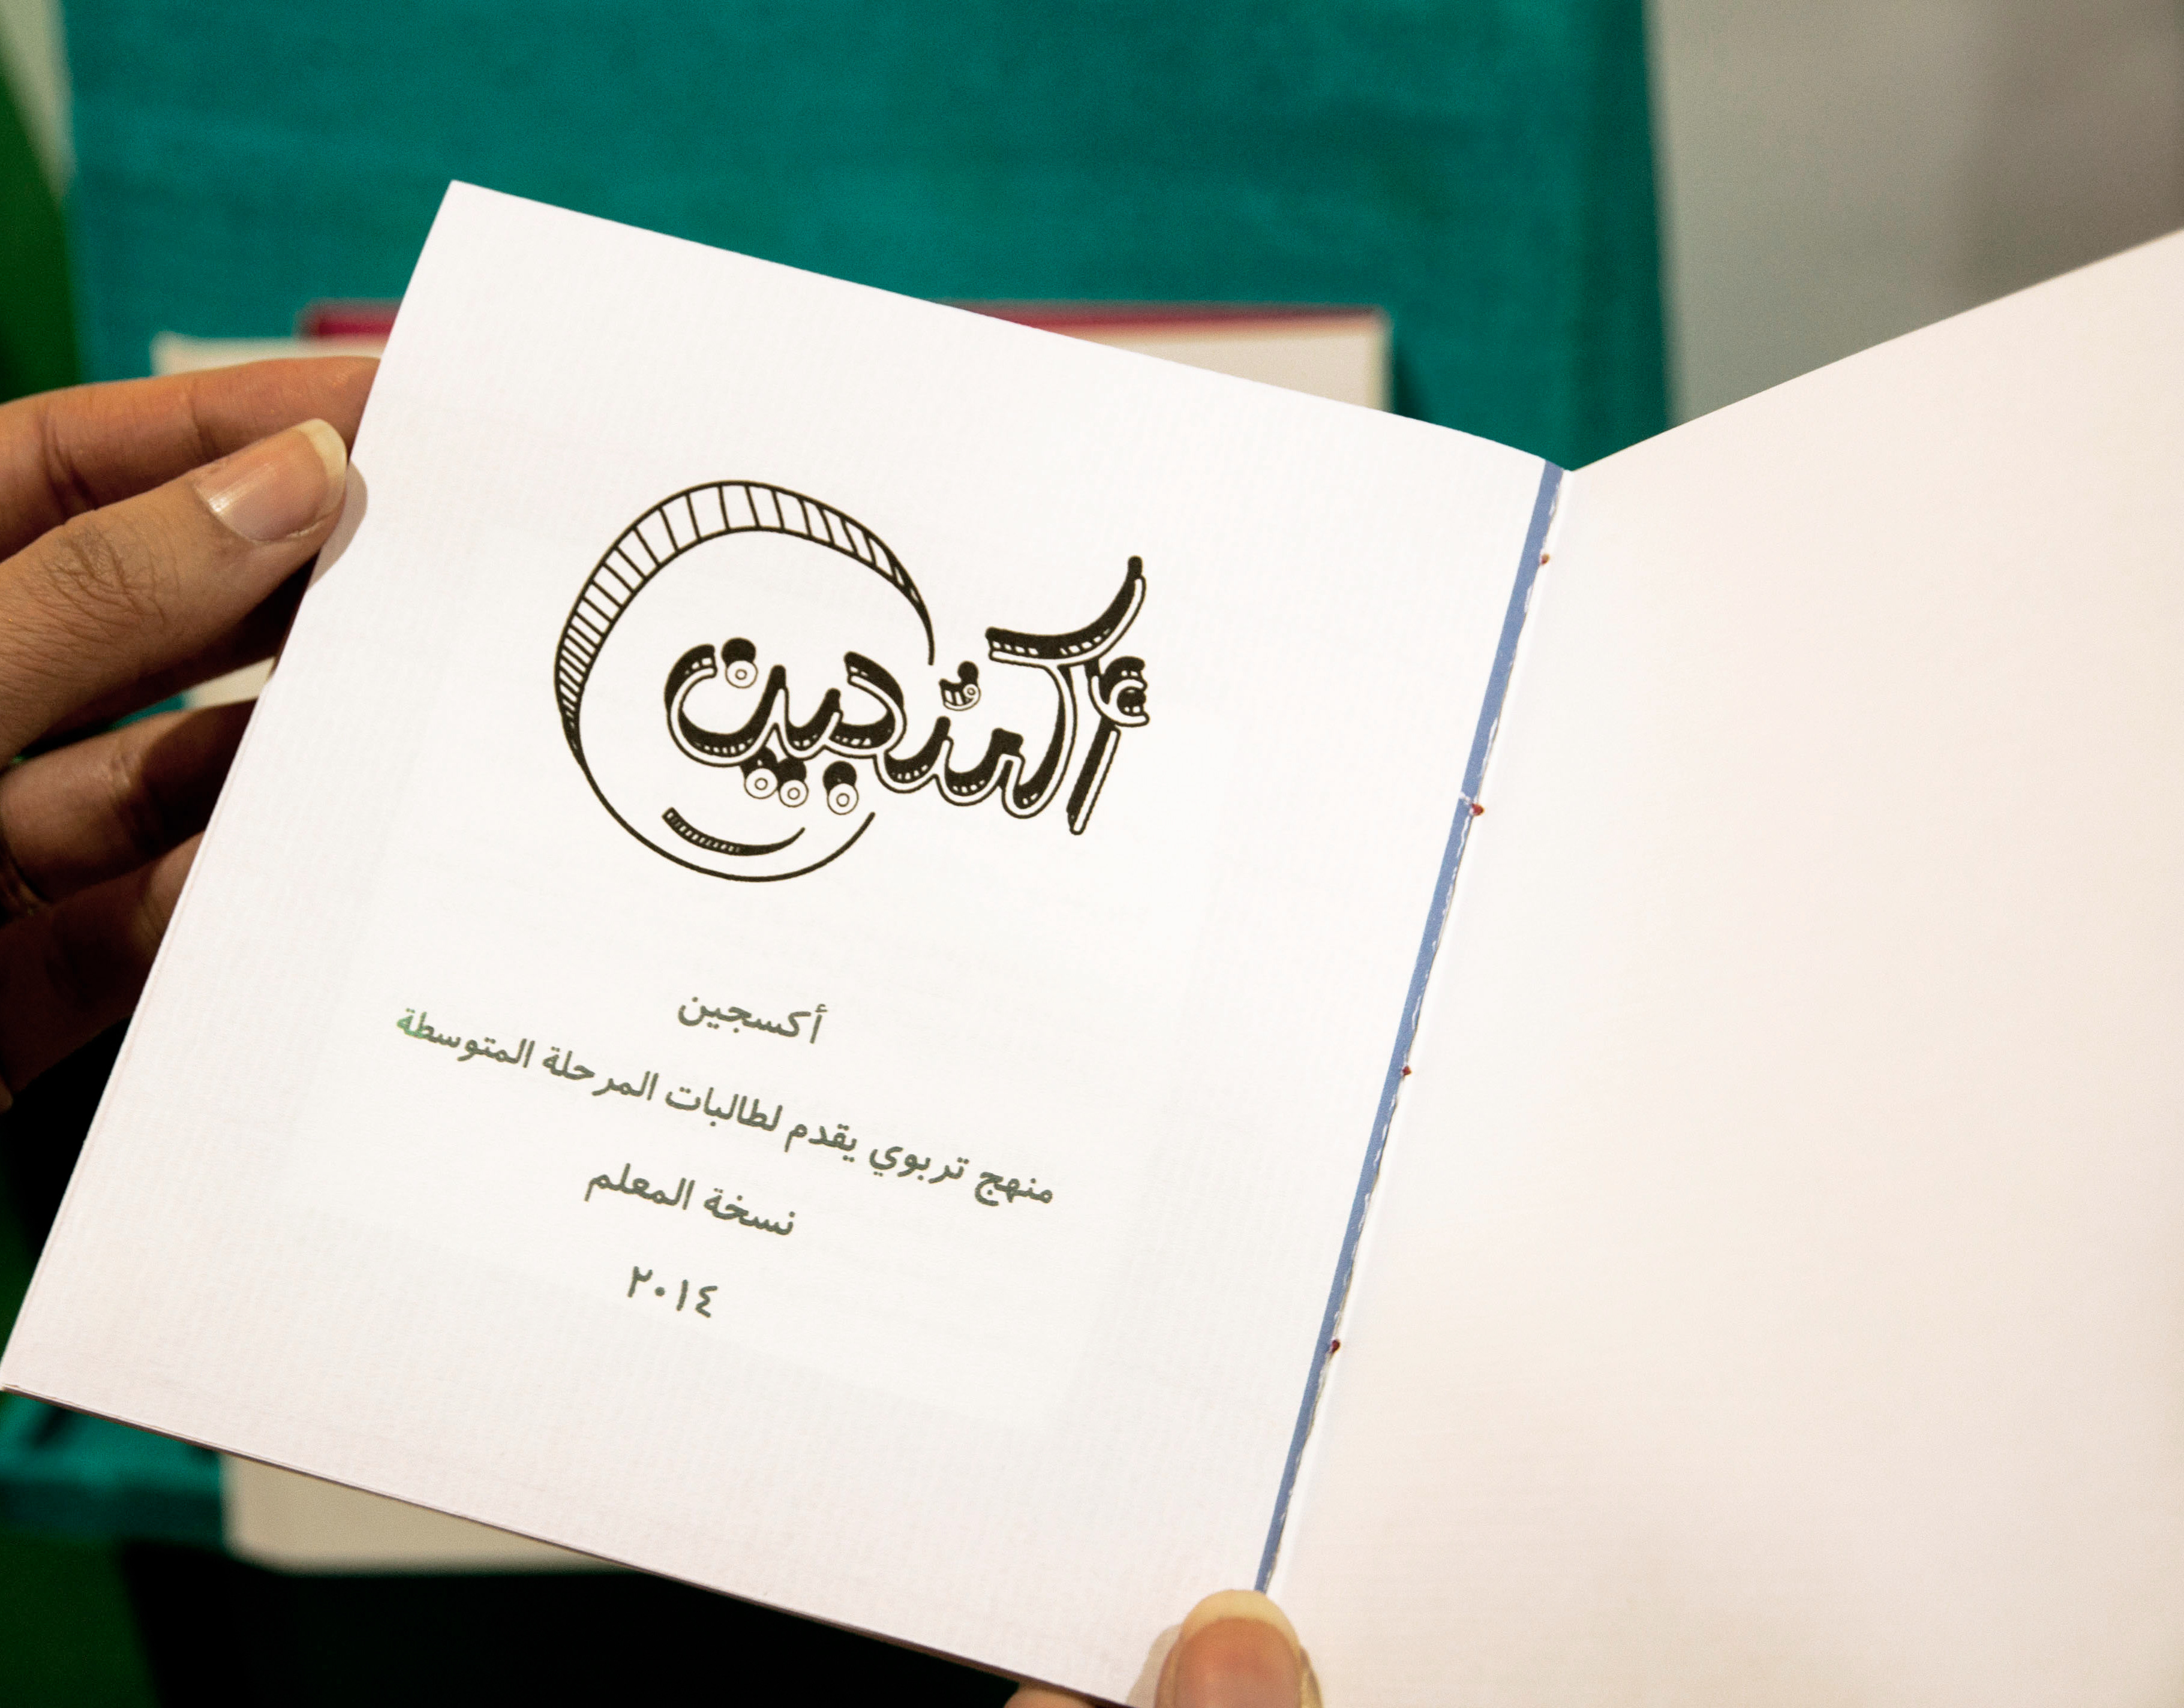 أكسجين
أكسجين
منهج تربوي يقدم لطالبات المرحلة المتوسطة
نسخة المعلم
٢٠١٤